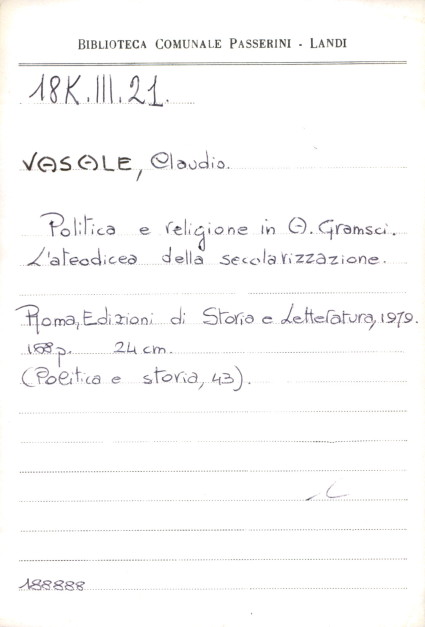 BIBLIOTECA COMUNALE PASSERINI - LANDI
18K.III.21.
VASALE, Claudio.
Politica e religione in A. Gramsci.
L'ateodicea della secolarizzazione.
Roma, Edizioni di Storia e Letteratura, 1979.
188 p. 24 cm.
(Politica e storia, 43).
188888